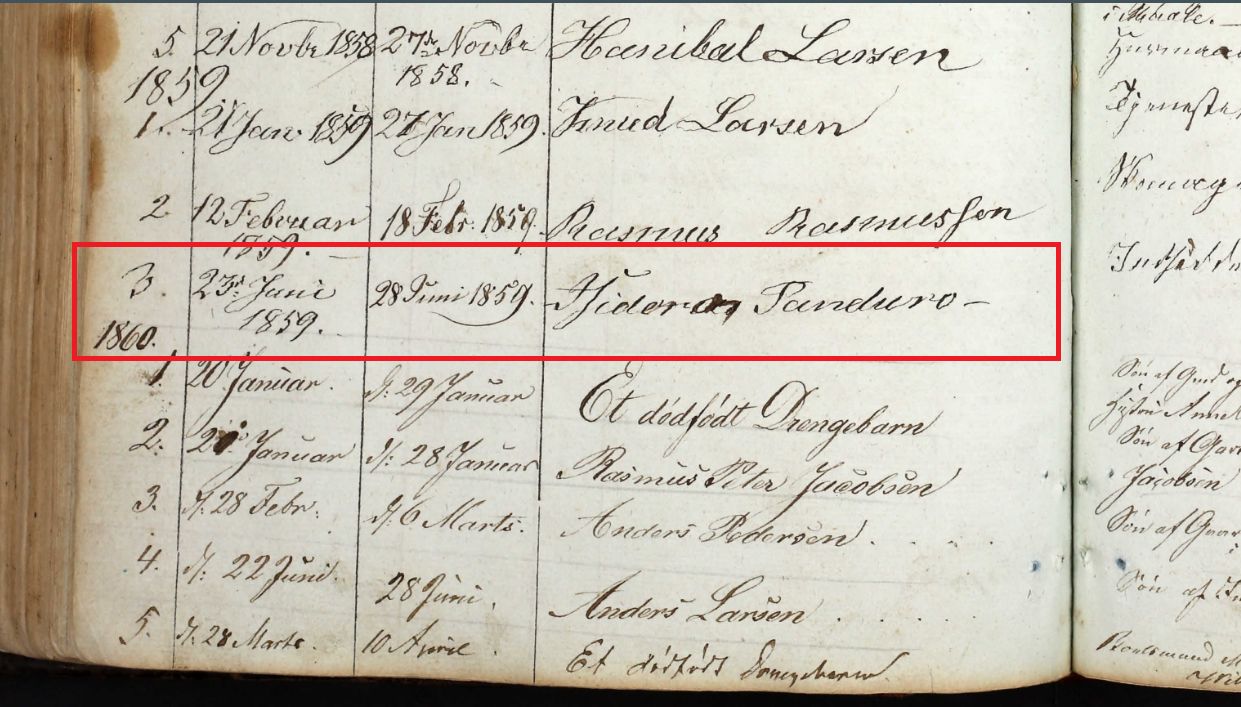 5. 21 Novbr 1858 27de Novbr 1858. Hanibal Larsen
1859
1. 21 Jan. 1859 27 Jan 1859. Knud Larsen
2. 12 Februar 1859. 18 Febr. 1859. Rasmus Rasmussen
3. 23de Juni 1859. 28 Juni 1859. Panduro
1860.
1. 20 Januar. d: 29 Januar Et dödfödt Drengebarn
2. Januar d: 28 Januar Rasmus Peter Jacobsen
3. d: 28 Febr. d: 6 Marts. Anders Pedersen
4. d: 22 Juni 28 Juni. Anders Larsen
5. d: 28 Marts. 10 April. Et dödfödt Drengebarn.
Tjeneste
Søn af
Søn af
Jacobsen
Søn af
Søn af